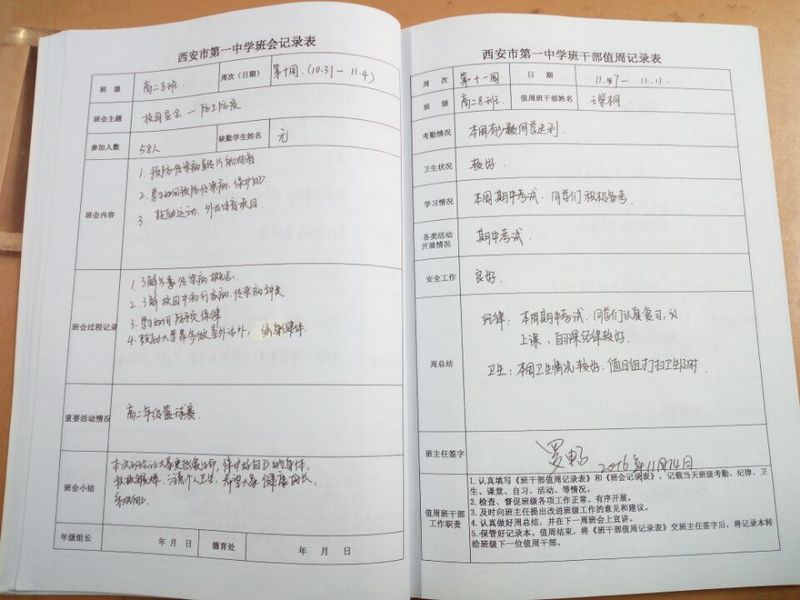 西安市第一中学班会记录表
班 级 高二8班 周次（日期） 第十周.(10.31 — 11.4)
班会主题 校园安全 — 防卫防疫
参加人数 58人 缺勤学生姓名 无
班会内容
1. 预防传染病
2. 学习如何预防传染病,保护自己
3. 鼓励运动
班会过程记录
1. 了解传染病概念
2. 了解校园中流行疾病,传染病种类
3. 学习如何
4. 鼓励大家多做室外活动,
重要活动情况 高二年级篮球赛
班会小结
保护好自己的身体,
个人卫生,希望大家健康成长,
年级组长 年 月 日 德育处 年 月 日
西安市第一中学班干部值周记录表
周 次 第十一周 日 期 11.7 — 11.11
班 级 高二8班 值周班干部姓名
考勤情况 本周有少数同学迟到.
卫生状况 较好.
学习情况 本周期中考试.同学们积极备考.
各类活动
开展情况 期中考试.
安全工作 良好.
周总结
纪律: 本周期中考试.同学们认真复习,
上课,自习课纪律较好.
卫生: 本周卫生情况较好.值日组打扫卫生及时
班主任签字 罗
2016年11月14日
值周班干部
工作职责
1. 认真填写《班干部值周记录表》和《班会记录表》，记载当天班级考勤、纪律、卫
生、课堂、自习、活动、等情况。
2. 检查、督促班级各项工作正常、有序开展。
3. 及时向班主任提出改进班级工作的意见和建议。
4. 认真做好周总结，并在下一周班会上宣讲。
5. 保管好记录本，值周结束，将《班干部值周记录表》交班主任签字后，将记录本转
给班级下一位值周干部。